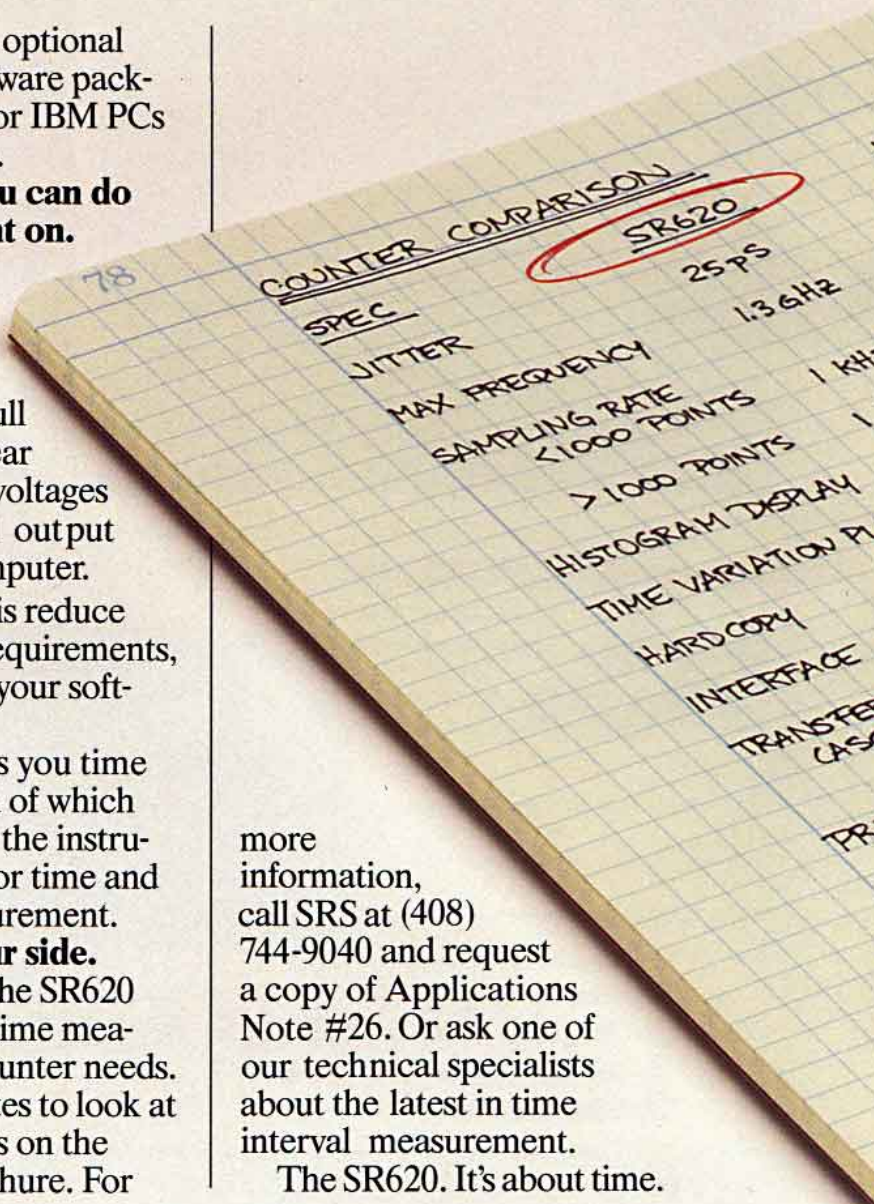 optional
ware pack-
or IBM PCs
u can do
nt on.
ull
ear
voltages
output
nputer.
is reduce
equirements,
your soft-
s you time
of which
the instru-
or time and
urement.
ur side.
he SR620
ime mea-
unter needs.
tes to look at
s on the
hure. For
more
information,
call SRS at (408)
744-9040 and request
a copy of Applications
Note #26. Or ask one of
our technical specialists
about the latest in time
interval measurement.
The SR620. It's about time.
78
COUNTER COMPARISON
SPEC SR620
JITTER 25 ps
MAX FREQUENCY 1.3 GHz
SAMPLING RATE
<1000 POINTS 1 KH
>1000 POINTS 1
HISTOGRAM DISPLAY
TIME VARIATION PL
HARDCOPY
INTERFACE
TRANSFE
(ASC
PR